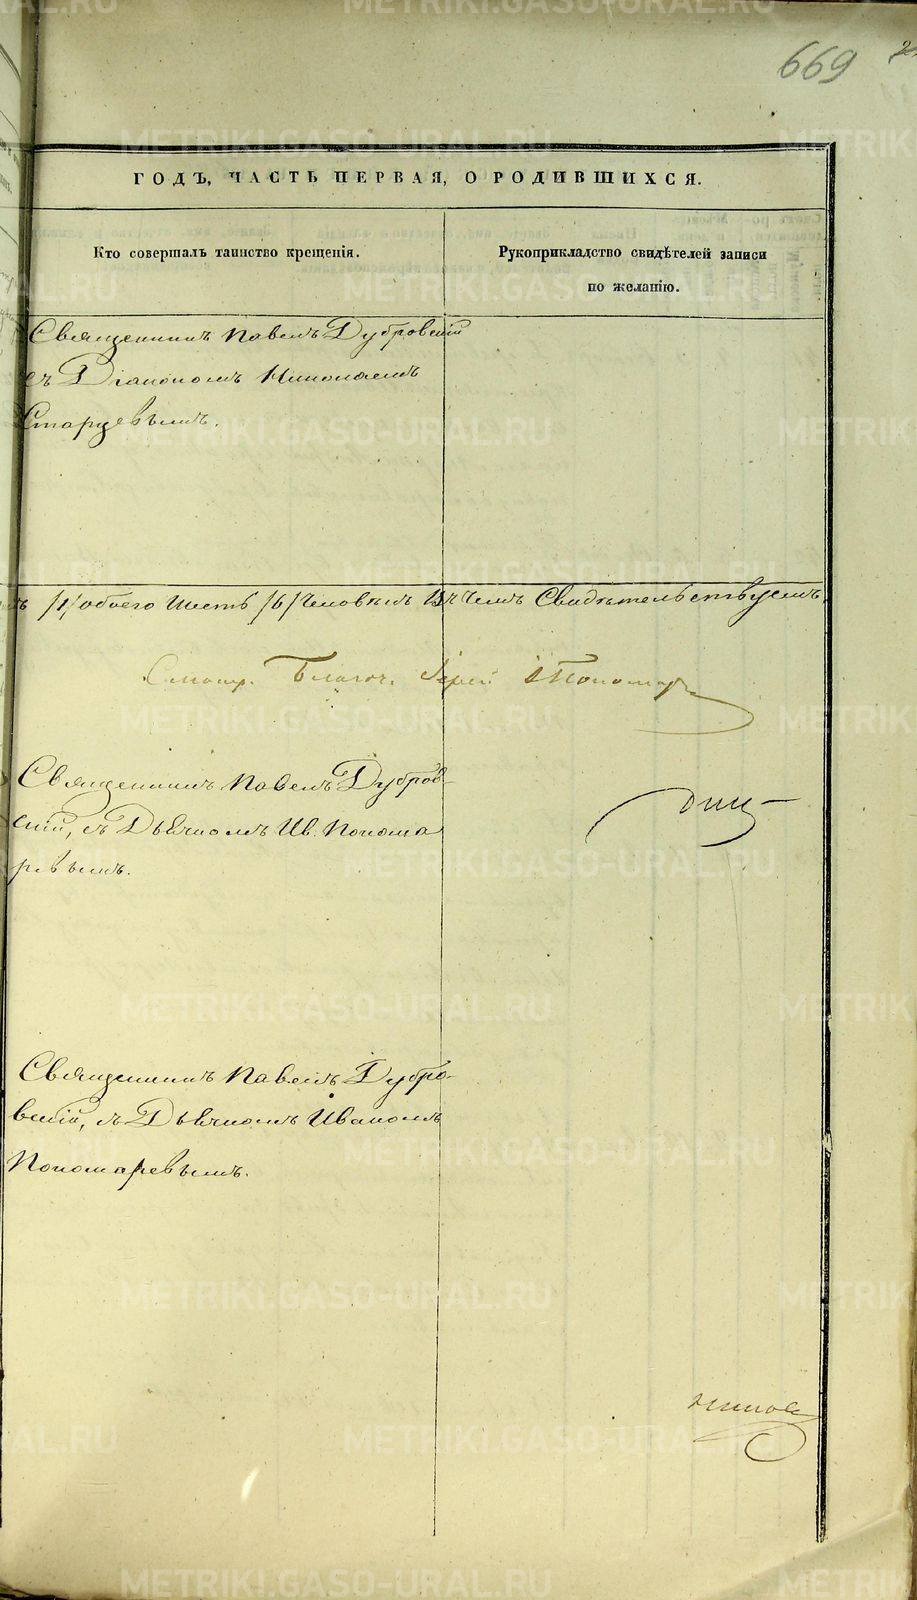 669
ГОДЪ, ЧАСТЬ ПЕРВАЯ, О РОДИВШИХСЯ.
Кто совершалъ таинство крещенія.
Рукоприкладство свидѣтелей записи
по желанію.
Священникъ Павелъ Дубровскій
съ Діакономъ Николаемъ
Старцевымъ.
/1/ обоего шесть /6/ человѣкъ въ чемъ Свидѣтельствуемъ.
Смотр. Благоч. Іерей Пономар
Священникъ Павелъ Дубров-
скій, съ Дьячкомъ Ив. Понома
ревымъ.
Священникъ Павелъ Дубро-
вскій, съ Дьячкомъ Иваномъ
Пономаревымъ.
METRIKI.GASO-URAL.RU